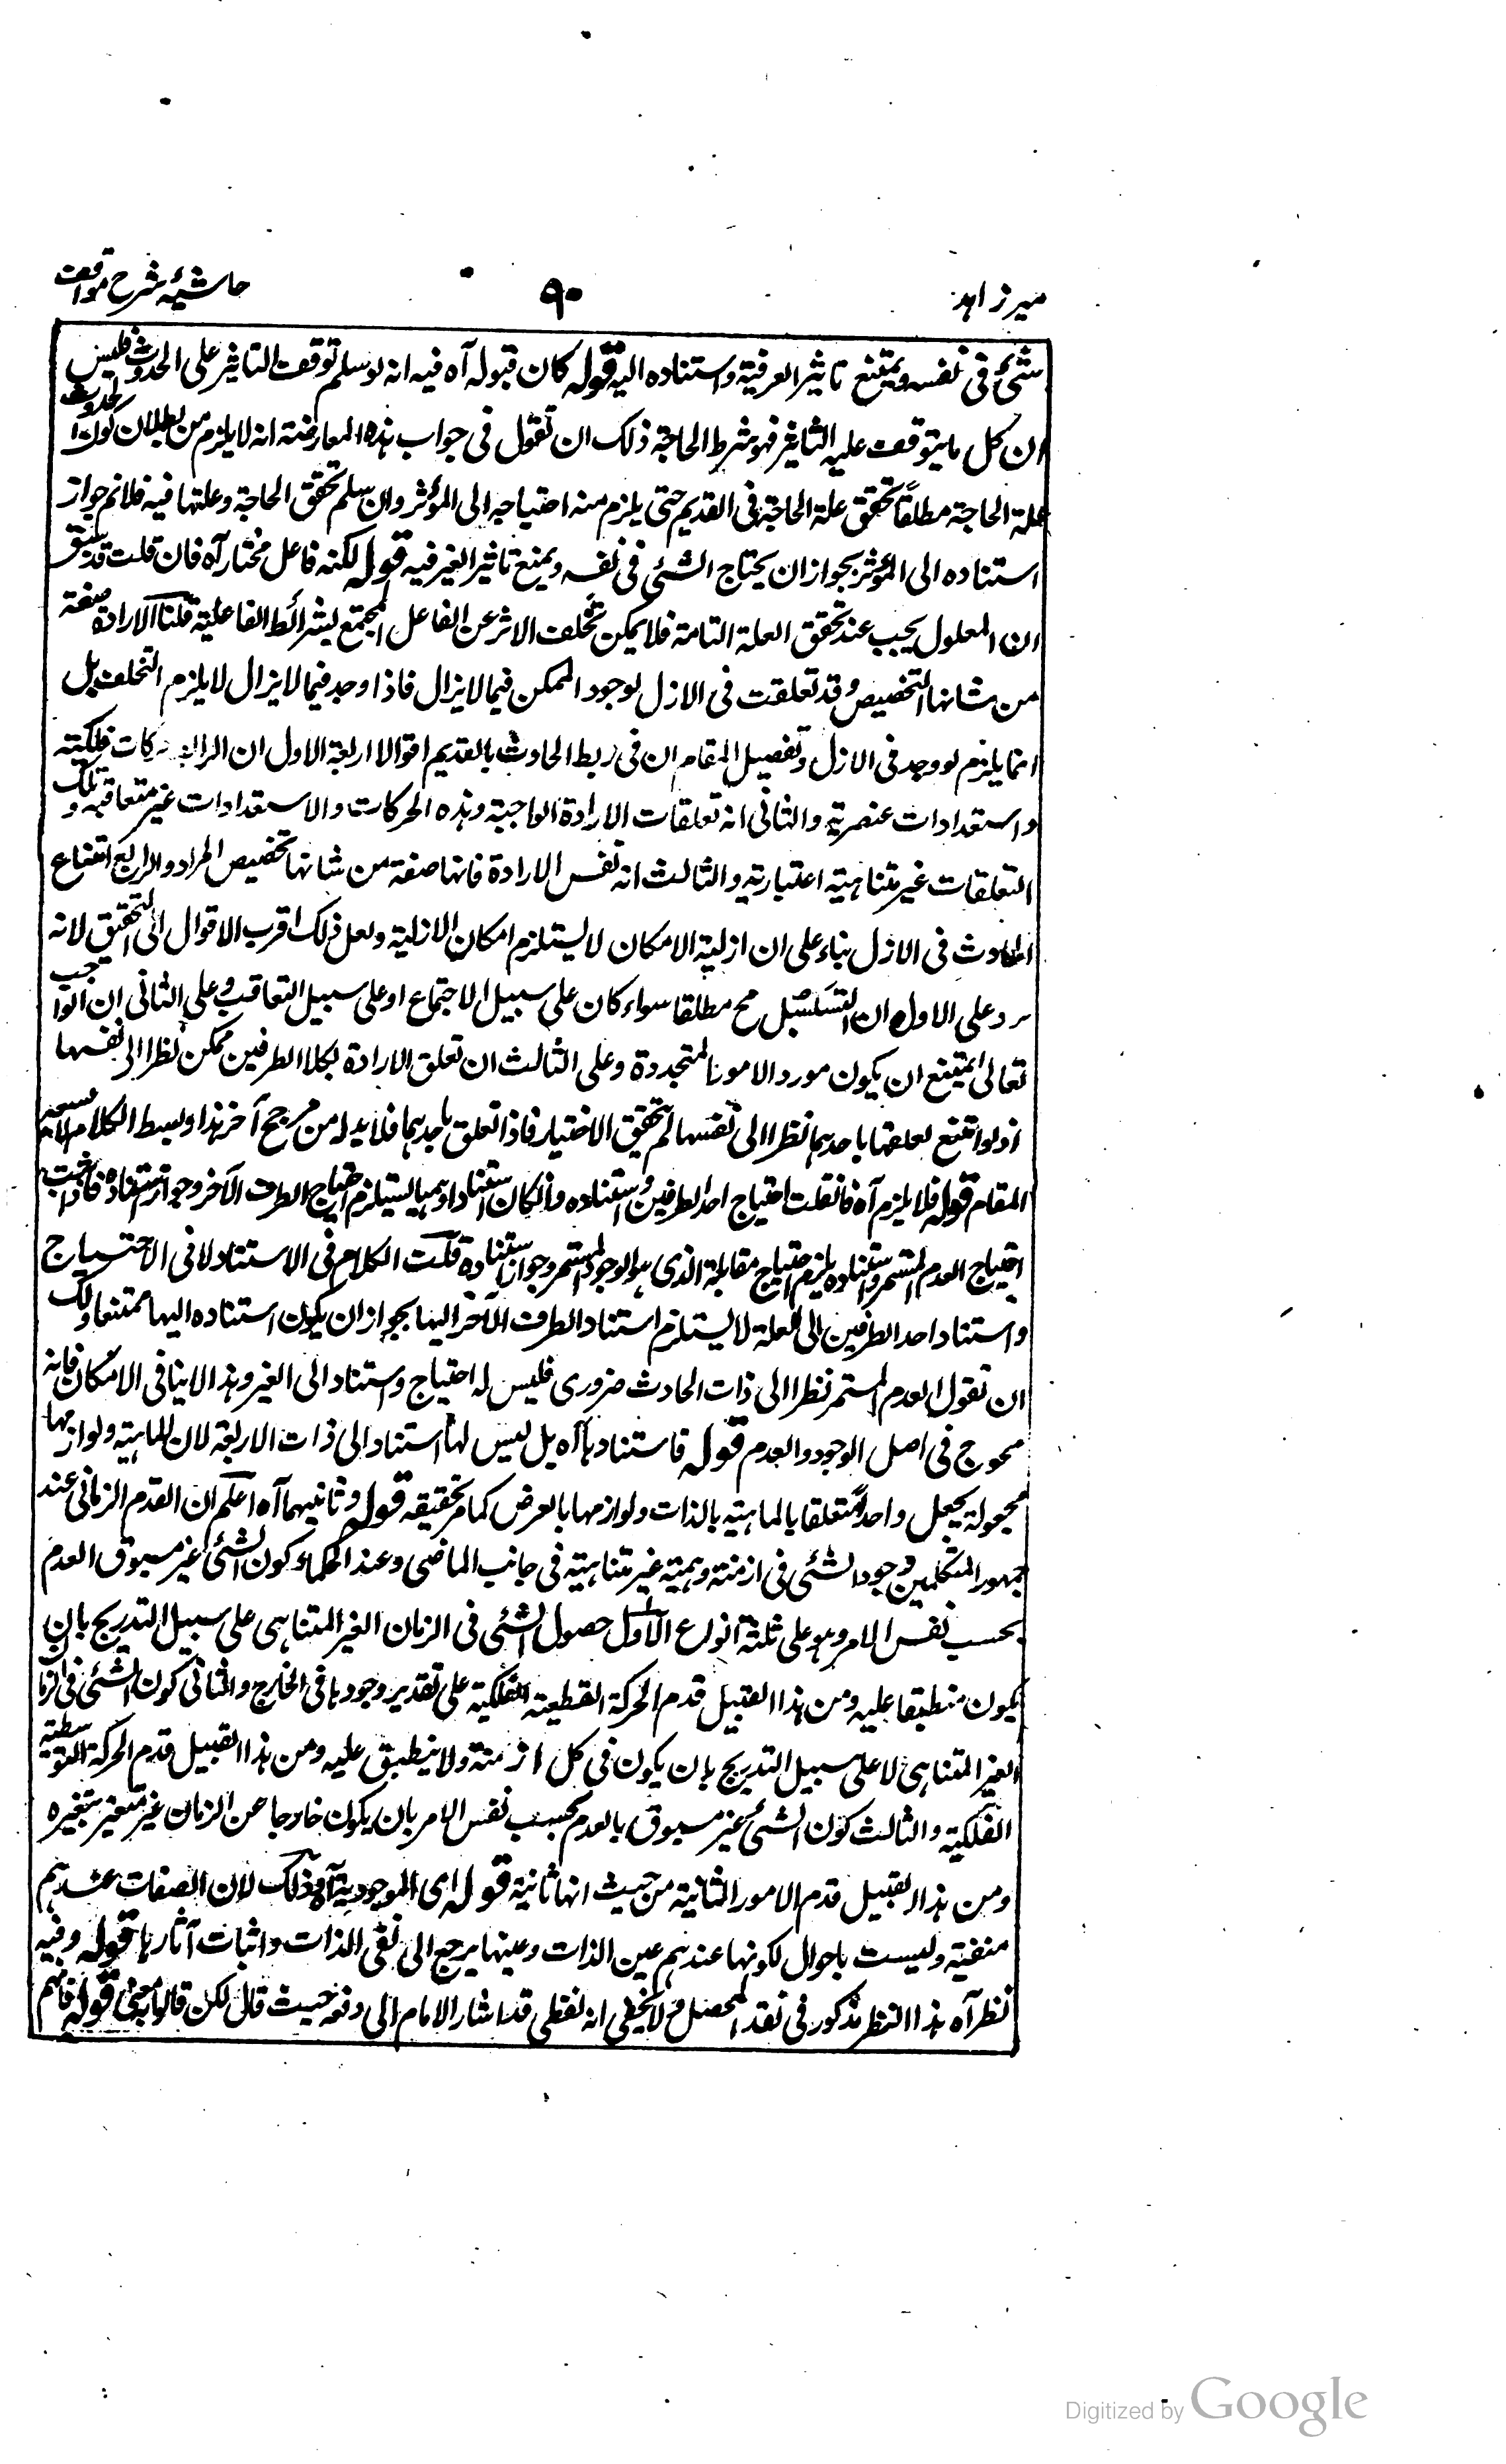 میرزاهد
٩٠
حاشیۂ شرح مواقف
شئ فى نفسه ويمتنع تاثير الغير فيه واستناده اليه قوله كان قبوله آه فيه انه لو سلم توقف التاثير على الحدوث فليس
ان كل ما يتوقف عليه التاثير فهو شرط الحاجة ذلك ان تقول فى جواب هذه المعارضة انه لا يلزم من بطلان كون الحدوث
علة الحاجة مطلقًا تحقق علة الحاجة فى القديم حتى يلزم منه احتياجه الى المؤثر وان سلم تحقق الحاجة وعلتها فيه فلا نم جواز
استناده الى المؤثر بجواز ان يحتاج الشئ فى نفسه ويمنع تاثير الغير فيه قوله لكنه فاعل مختار آه فان قلت قد سبق
ان المعلول يجب عند تحقق العلة التامة فلا يمكن تخلف الاثر عن الفاعل المجتمع بشرائط الفاعلية قلنا الارادة صفة
من شانها التخصيص وقد تعلقت فى الازل لوجود الممكن فيما لا يزال فاذا وجد فيما لا يزال لا يلزم التخلف بل
انما يلزم لو وجد فى الازل وتفصيل المقام ان فى ربط الحادث بالقديم اقوالا اربعة الاول ان الرابط حركات فلكية
واستعدادات عنصرية والثانى انه تعلقات الارادة الواجبة وهذه الحركات والاستعدادات غير متعاقبة وتلك
التعلقات غير متناهية اعتبارية والثالث انه نفس الارادة فانها صفة من شانها تخصيص المراد والرابع امتناع
الحادث فى الازل بناء على ان ازلية الامكان لا يستلزم امكان الازلية ولعل ذلك اقرب الاقوال الى التحقيق لانه
يرد على الاول ان التسلسل مح مطلقا سواء كان على سبيل الاجتماع او على سبيل التعاقب وعلى الثانى ان الواجب
تعالى يمتنع ان يكون مورد الامور المتجددة وعلى الثالث ان تعلق الارادة بكلا الطرفين ممكن نظرا الى نفسها
اذ لو امتنع تعلقها باحدهما نظرا الى نفسها لم يتحقق الاختيار فاذا تعلق باحدهما فلا بد له من مرجح آخر هذا وبسط الكلام لا يسعه
المقام قوله فلا يلزم آه فان قلت احتياج احد الطرفين واستناده وان كان استنادا وهميا يستلزم احتياج الطرف الآخر وجواز استناده فاذا ثبت
احتياج العدم المستمر واستناده يلزم احتياج مقابلة الذى هو الوجود المستمر وجواز استناده قلت الكلام فى الاستناد لا فى الاحتياج
واستناد احد الطرفين الى العلة لا يستلزم استناد الطرف الآخر اليها بجواز ان يكون استناده اليها ممتنعا ولك
ان تقول العدم المستمر نظرا الى ذات الحادث ضرورى فليس له احتياج واستناد الى الغير وهذا لا ينافى الامكان فانه
محوج فى اصل الوجود والعدم قوله فاستنادها آه بل ليس لها استناد الى ذات الاربعة لان الماهية ولوازمها
مجعولة بجعل واحد متعلقا بالماهية بالذات ولوازمها بالعرض كما مر تحقيقه قوله وثانيهما آه اعلم ان القدم الزمانى عند
جمهور المتكلمين وجود الشئ فى ازمنة وهمية غير متناهية فى جانب الماضى وعند الحكماء كون الشئ غير مسبوق العدم
بحسب نفس الامر وهو على ثلثة انواع الاول حصول الشئ فى الزمان الغير المتناهى على سبيل التدريج بان
يكون منطبقا عليه ومن هذا القبيل قدم الحركة القطعية الفلكية على تقدير وجودها فى الخارج والثانى كون الشئ فى الزمان
الغير المتناهى لا على سبيل التدريج بان يكون فى كل ازمنة ولا ينطبق عليه ومن هذا القبيل قدم الحركة التوسطية
الفلكية والثالث كون الشئ غير مسبوق بالعدم بحسب نفس الامر بان يكون خارجا عن الزمان غير متغير بتغيره
ومن هذا القبيل قدم الامور الثانية من حيث انها ثانية قوله اى الموجودية آه وذلك لان الصفات عندهم
منفية وليست باحوال لكونها عندهم عين الذات وعينها يرجع الى نفى الذات واثبات آثارها قوله وفيه
نظر آه هذا النظر مذكور فى نقد المحصل ولا يخفى انه لفظى قد اشار الامام الى دفعه حيث قال لكن قالوا بمعنى قوله فانهم
Digitized by Google